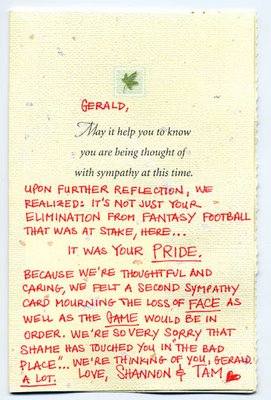 GERALD,
May it help you to know
you are being thought of
with sympathy at this time.
UPON FURTHER REFLECTION, WE
REALIZED: IT'S NOT JUST YOUR
ELIMINATION FROM FANTASY FOOTBALL
THAT WAS AT STAKE, HERE...
IT WAS YOUR PRIDE.
BECAUSE WE'RE THOUGHTFUL AND
CARING, WE FELT A SECOND SYMPATHY
CARD MOURNING THE LOSS OF FACE AS
WELL AS THE GAME WOULD BE IN
ORDER. WE'RE SO VERY SORRY THAT
SHAME HAS TOUCHED YOU IN "THE BAD
PLACE"... WE'RE THINKING OF YOU, GERALD.
A LOT. LOVE, SHANNON & TAM